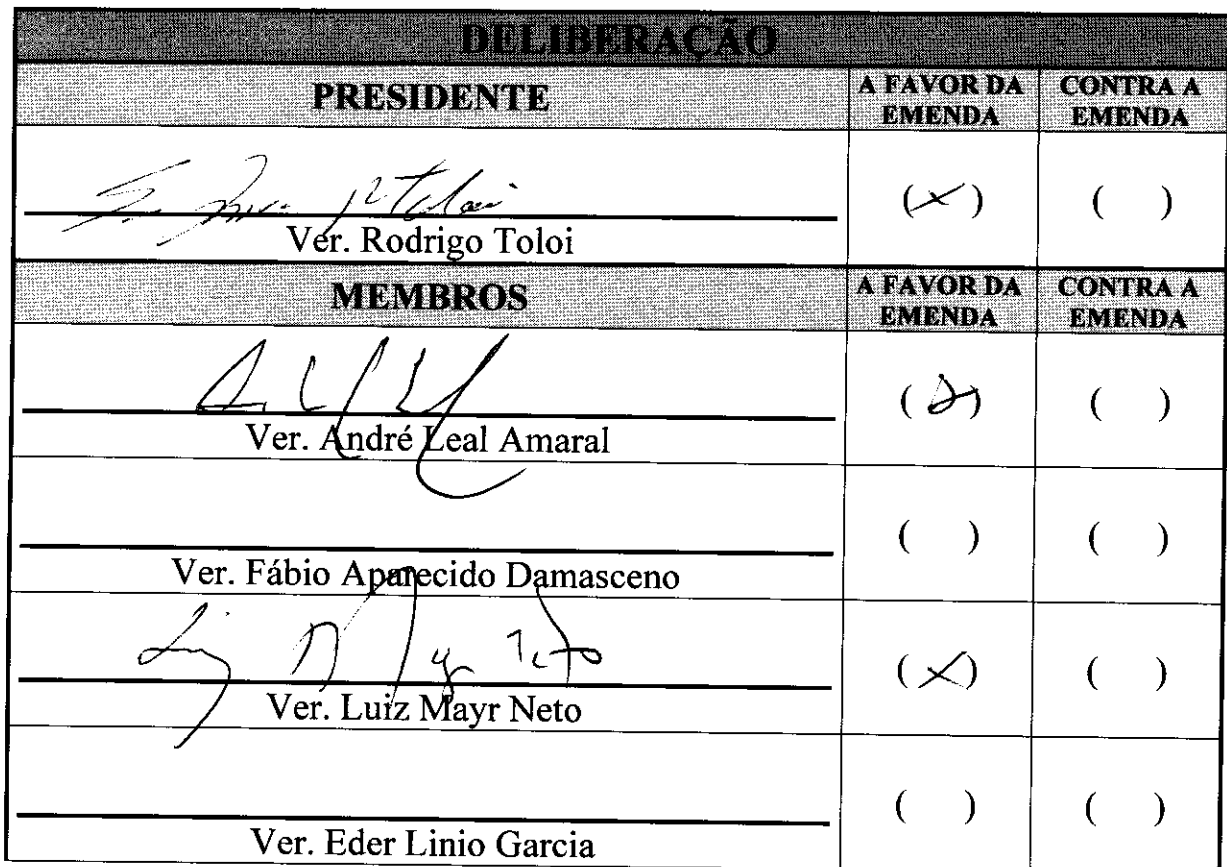 DELIBERAÇÃO
PRESIDENTE
A FAVOR DA EMENDA
CONTRA A EMENDA
(X)
( )
Ver. Rodrigo Toloi
MEMBROS
A FAVOR DA EMENDA
CONTRA A EMENDA
( )
Ver. André Leal Amaral
( )
( )
Ver. Fábio Aparecido Damasceno
(X)
( )
Ver. Luiz Mayr Neto
( )
( )
Ver. Eder Linio Garcia